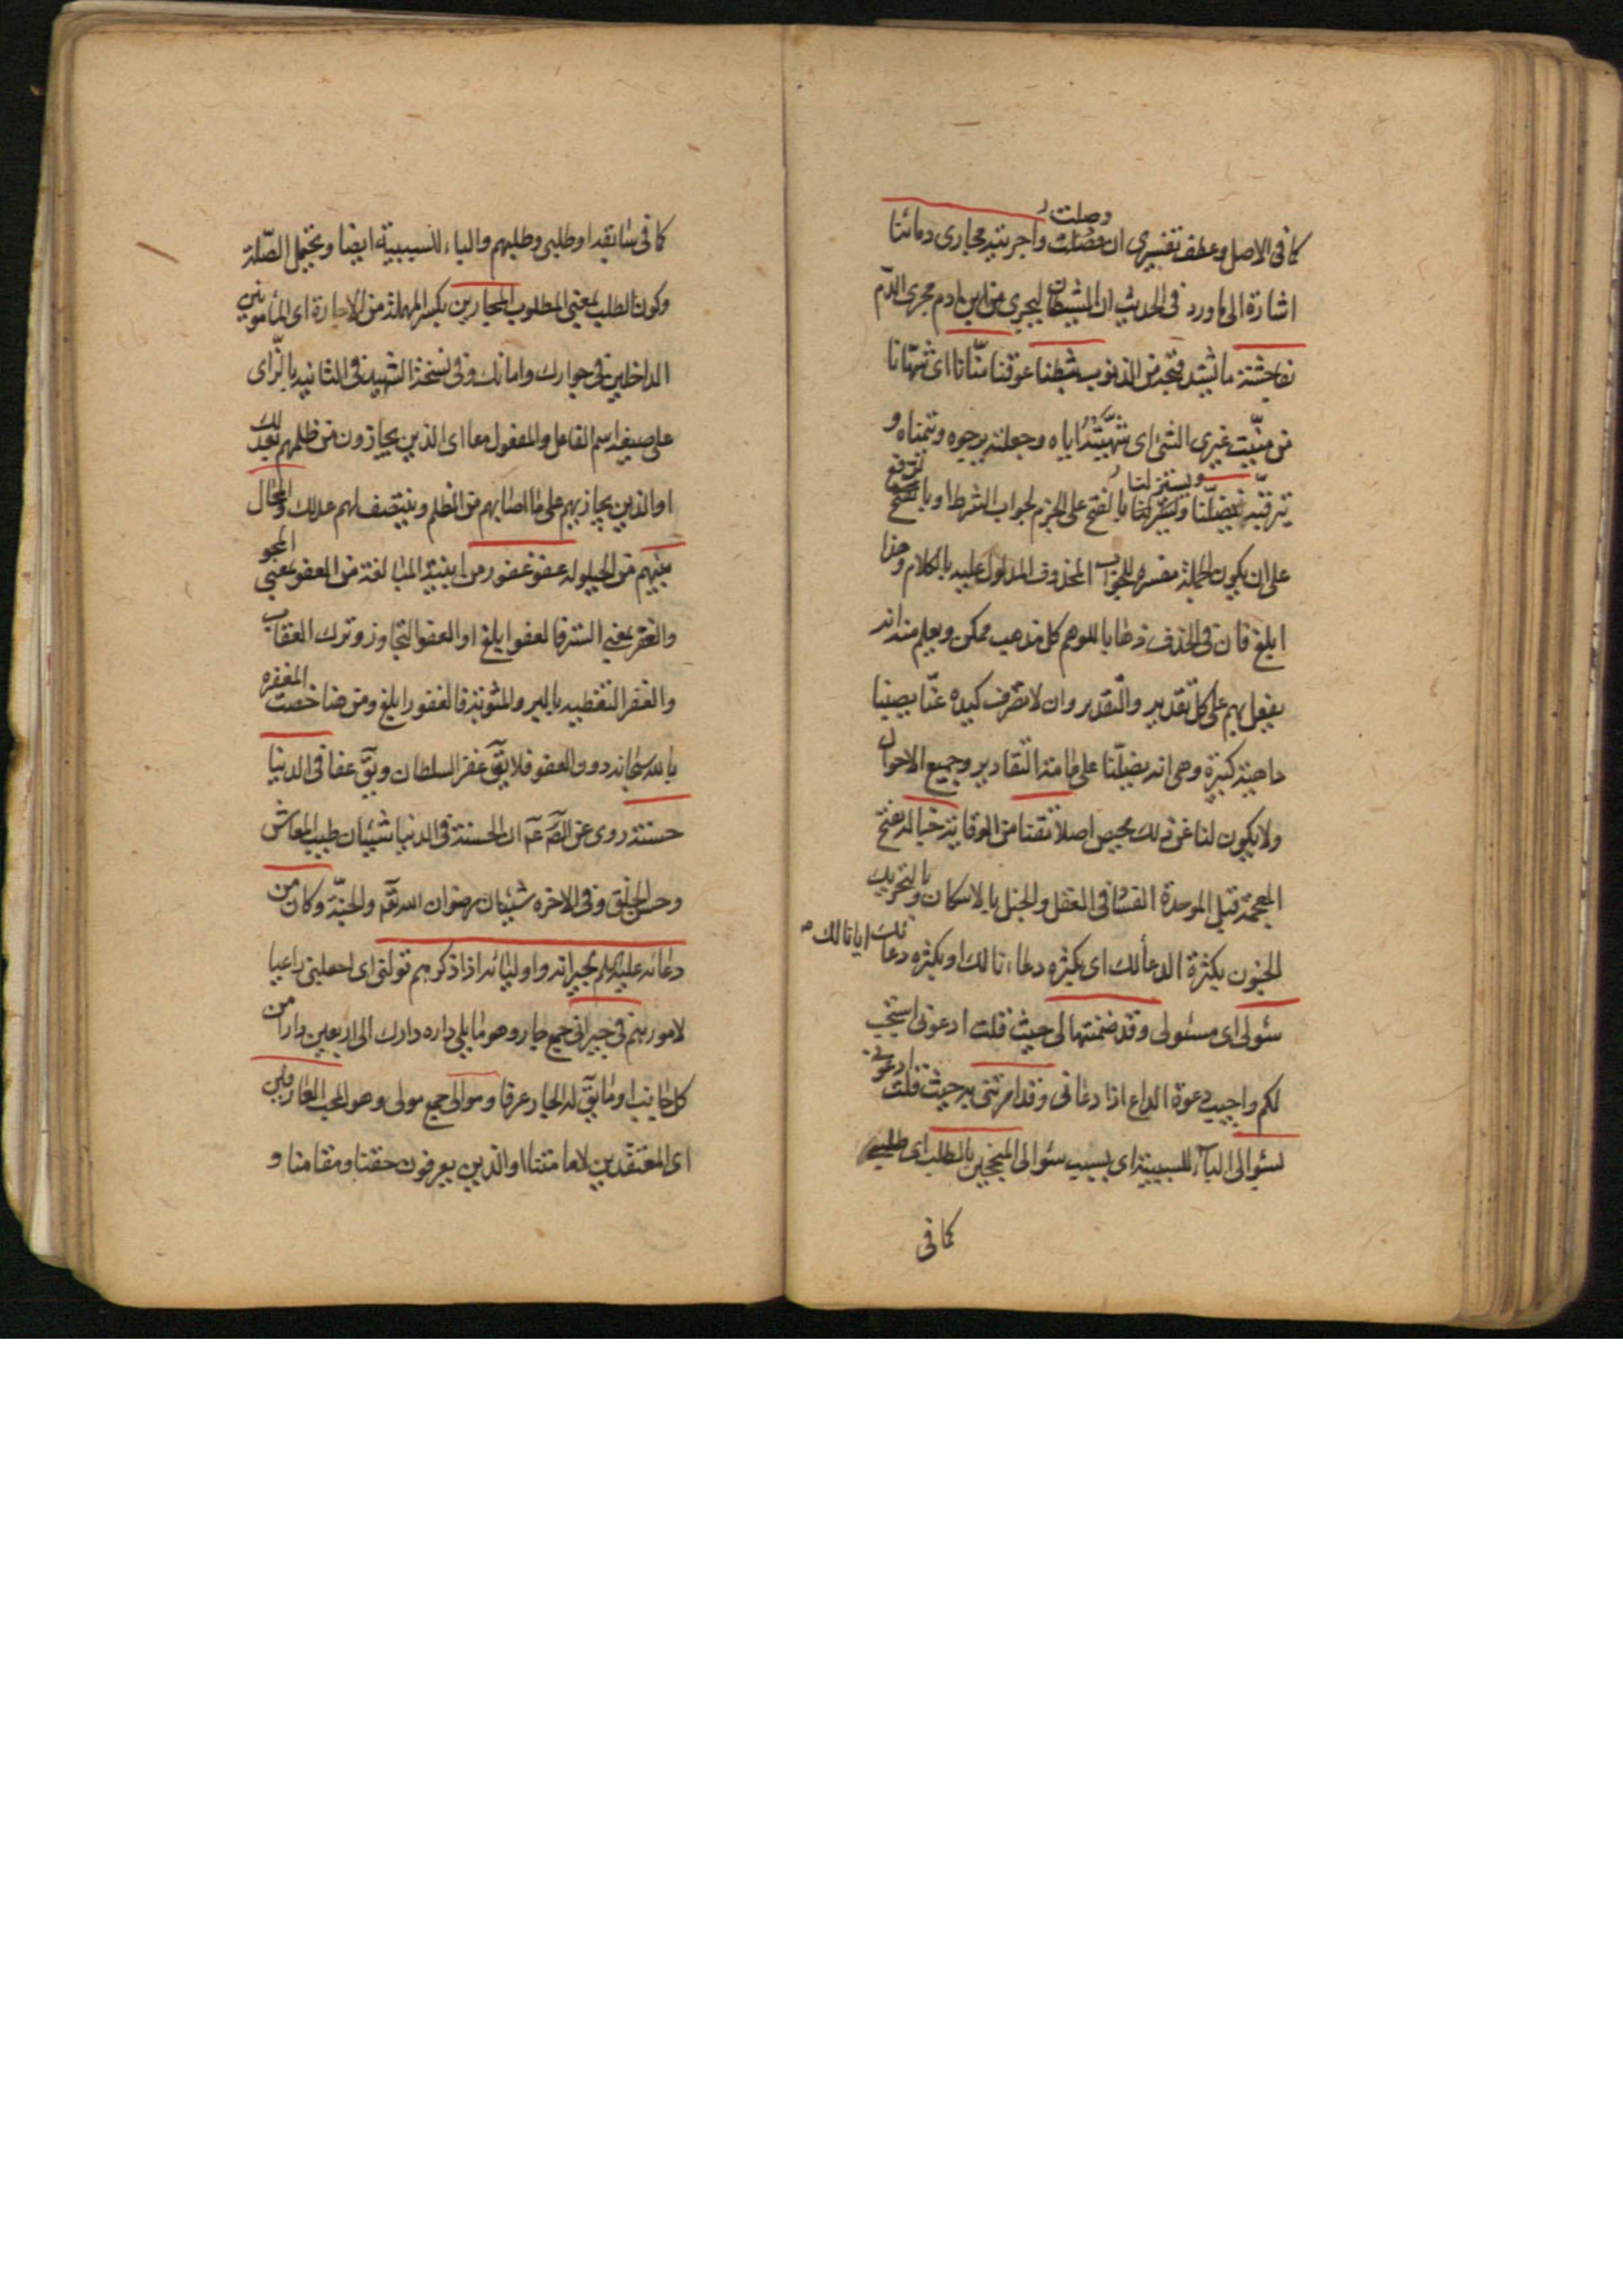 كما فى الاصل وعطف تفسيرى ان وصلت واجريته مجارى دمائنا
اشارة الى ما ورد فى الحديث ان الشيطان ليجرى من ابن ادم مجرى الدم
بفاحشة ما يشتد قبحه من الذنوب شبطنا عوقنا منّانا اى شهّانا
من منّيت غيرى الشئ اى شهّيته اياه وجعلته يرجوه ويتمناه و
يترقبه يضلّنا ويستزلنا بالفتح على الجزم لجواب الشرط او بالرفع
على ان يكون الجملة مفسرة للجواب المحذوف المدلول عليه بالكلام وهذا
ابلغ فان فى الحذف ذهابا للوهم كل مذهب ممكن ويعلم منه انه
يفعل بهم على كل تقدير والتقدير وان لا تصرف كيده عنّا يصبنا
داهية كبيرة وهى انه يضلّنا على هذا التقادير وجميع الاحوال
ولا يكون لنا عن ذلك محيص اصلا تقنا من الوقاية خباله بفتح
المعجمة قبل الموحدة الفساد فى العقل والخبل بالاسكان وبالتحريك
الجنون بكثرة الدعاء لك اى بكثرة دعائنا لك او بكثرة دعائك ايانا لك
سئولى اى مسئولى وقد ضمنتها لى حيث قلت ادعونى استجب
لكم واجيب دعوة الداع اذا دعانى وقد امرتنى به حيث قلت ادعونى
بسئوالى الياء للسببية اى بسبب سئوالى المنجحين بالطلب اى
كما فى
كما فى سابقه او طلبى وطلبهم والباء للسببية ايضا ويحتمل الصّلة
وكون الطلب بمعنى المطلوب المجارين بكسر المهملة من الاجارة اى المأمونين
الداخلين فى جوارك وامانك وفى نسخة الشهيد فى الثانية بالزّاى
على صيغة اسم الفاعل والمفعول معا اى الذين يجازون من ظلمهم بعدلك
او الذين يجازيهم على ما اصابهم من الظلم وينتصف لهم عدلك والحال
بينهم من الحيلولة عفو غفور من ابنية المبالغة من العفو بمعنى المحو
والغفر بمعنى الستر فالعفو ابلغ او العفو التجاوز وترك العقاب
والغفر التغطية بالبر والمثوبة فالغفور ابلغ ومن هنا خصت المغفرة
بالله سبحانه دون العفو فلا يق غفر السلطان ويق عفا فى الدنيا
حسنة روى عن الصّ عم ان الحسنة فى الدنيا شيئان طيب المعاش
وحسن الخلق وفى الاخرة شيئان رضوان الله تعه والجنّة وكان من
دعائه عليه السلم لجيرانه واوليائه اذا ذكرهم تولنى اى اجعلنى راعيا
لامورهم فى جيرانى جمع جار وهو ما يلى داره دارك الى اربعين دارا من
كل جانب او ما يق له الجار عرفا وموالى جمع مولى وهو المحب العارفين
اى المعتقدين لامامتنا او الذين يعرفون حقنا ومقامنا و